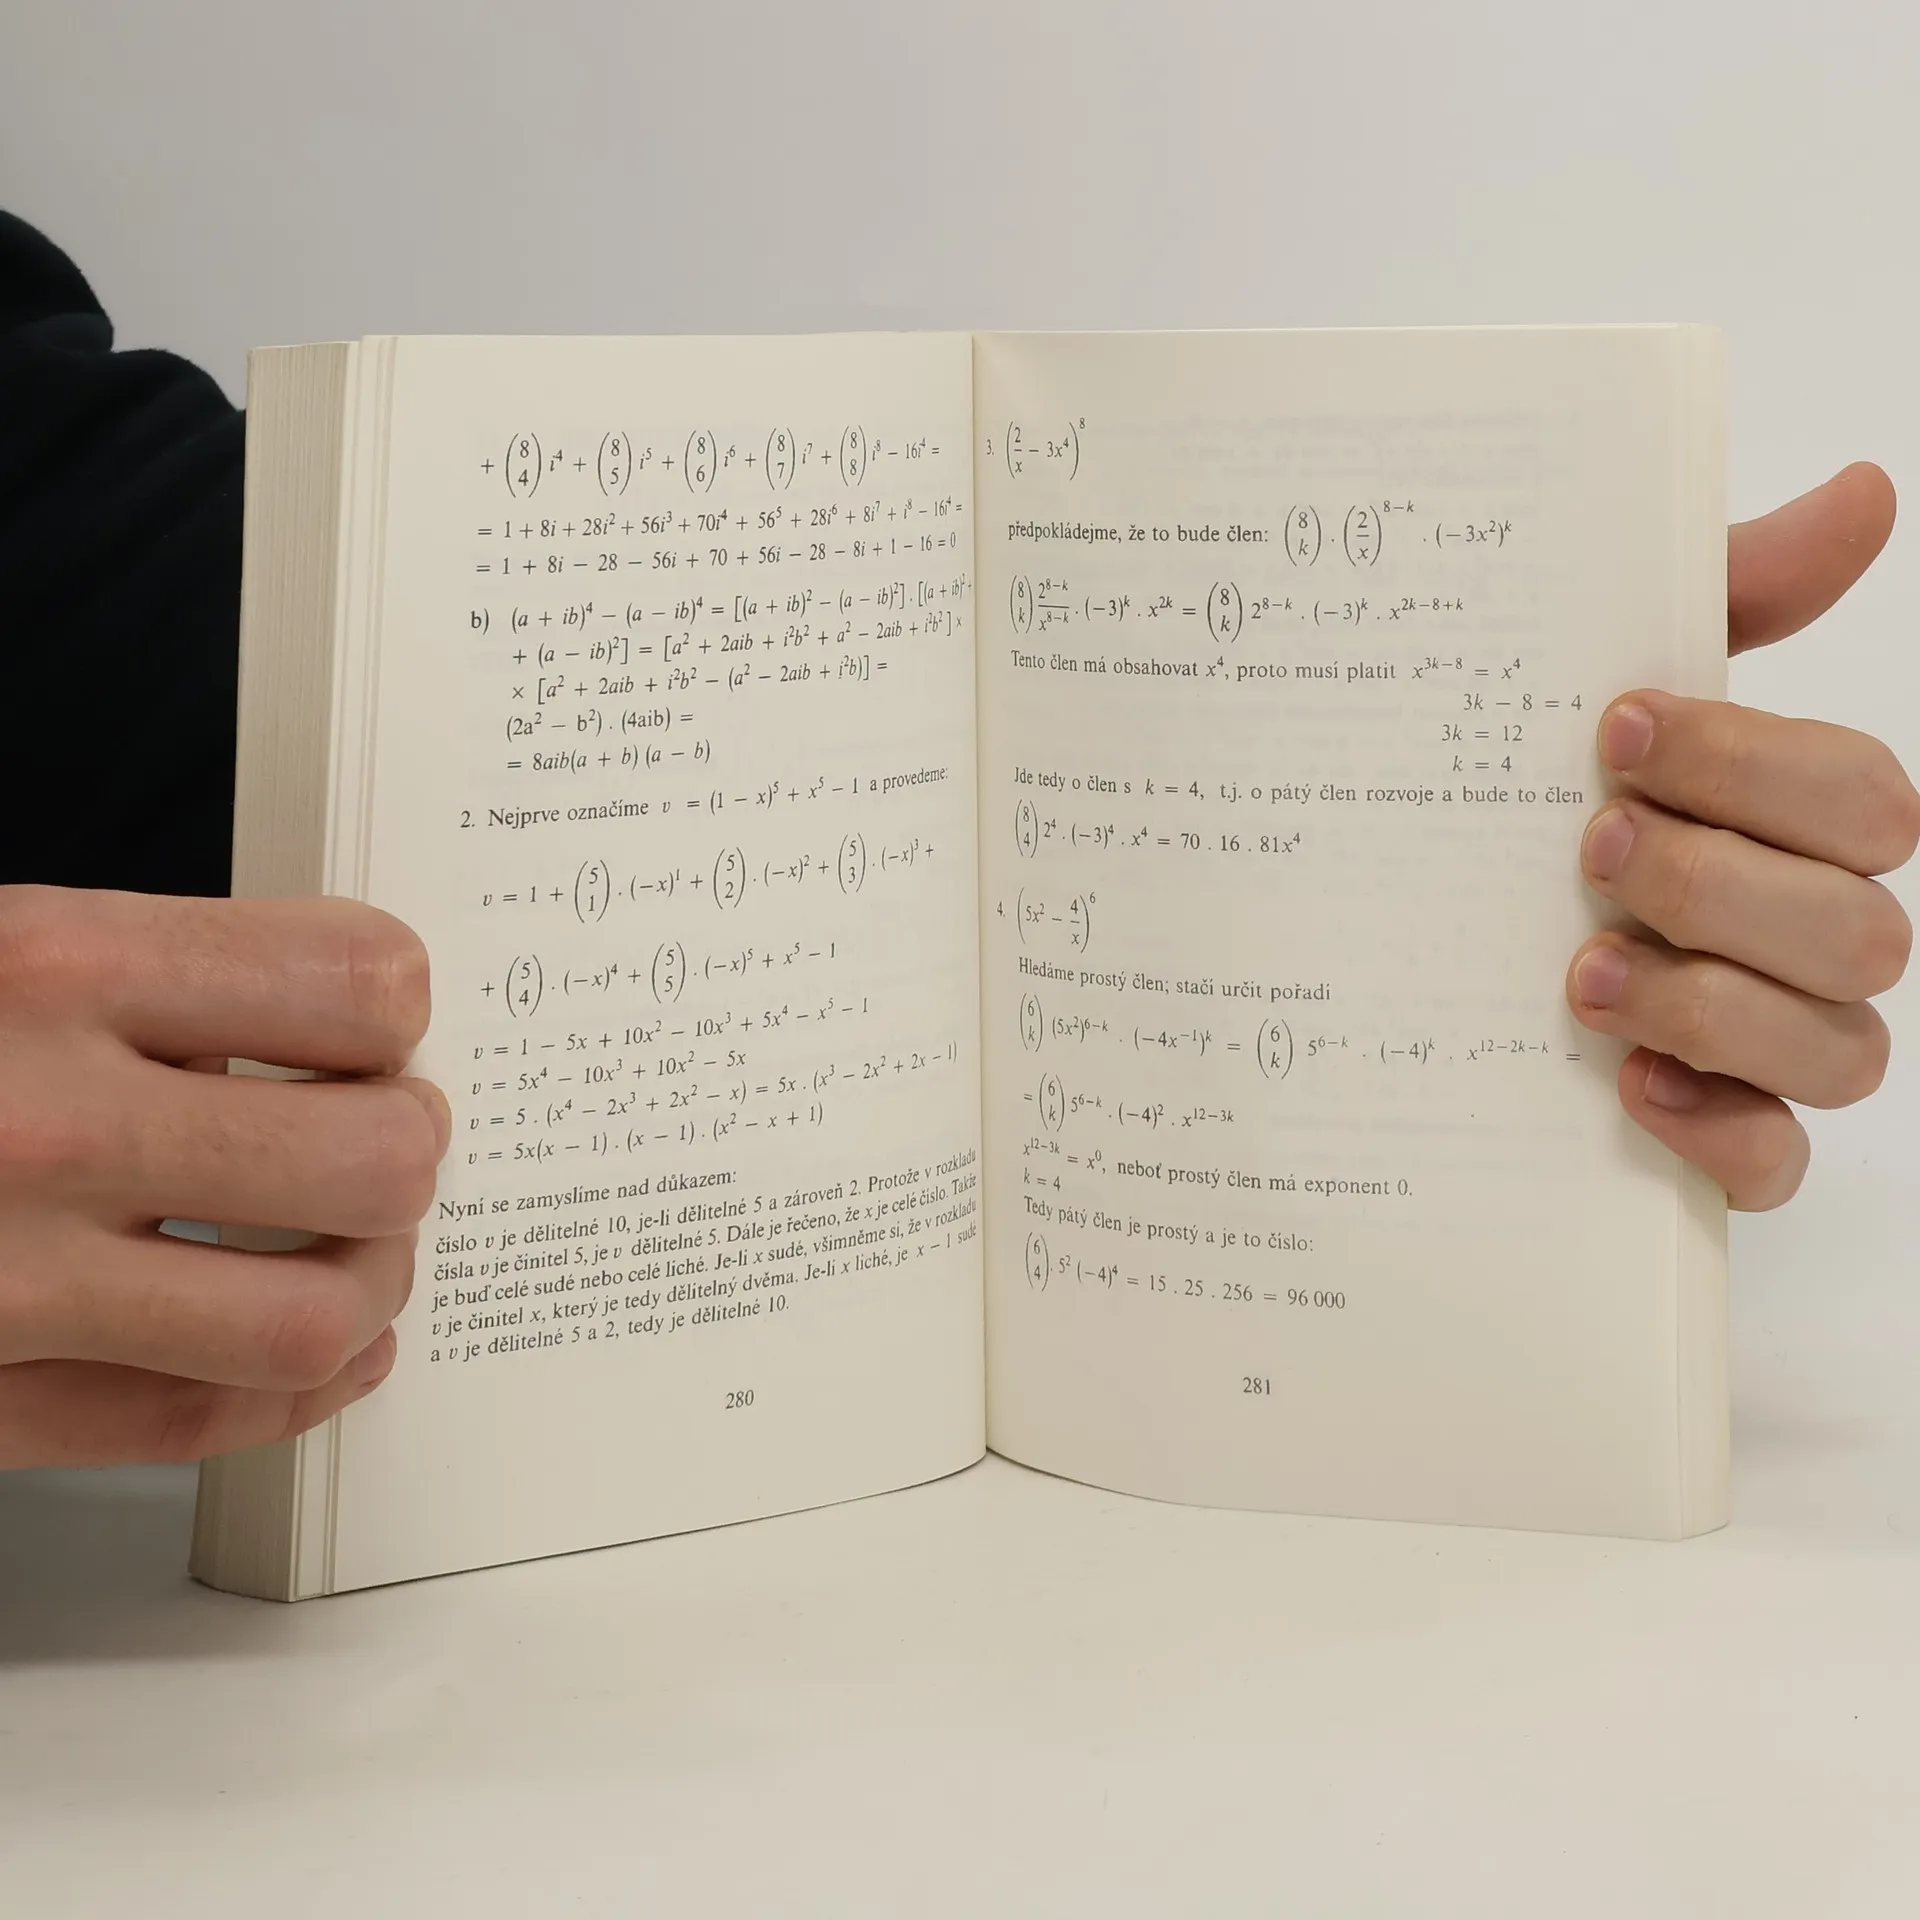 + (8 4) i⁴ + (8 5) i⁵ + (8 6) i⁶ + (8 7) i⁷ + (8 8) i⁸ − 16i⁴ =
= 1 + 8i + 28i² + 56i³ + 70i⁴ + 56⁵ + 28i⁶ + 8i⁷ + i⁸ − 16i⁴ =
= 1 + 8i − 28 − 56i + 70 + 56i − 28 − 8i + 1 − 16 = 0
b) (a + ib)⁴ − (a − ib)⁴ = [(a + ib)² − (a − ib)²] . [(a + ib)² +
+ (a − ib)²] = [a² + 2aib + i²b² + a² − 2aib + i²b²] ×
× [a² + 2aib + i²b² − (a² − 2aib + i²b)] =
(2a² − b²) . (4aib) =
= 8aib(a + b) (a − b)
2. Nejprve označíme v = (1 − x)⁵ + x⁵ − 1 a provedeme:
v = 1 + (5 1) . (−x)¹ + (5 2) . (−x)² + (5 3) . (−x)³ +
+ (5 4) . (−x)⁴ + (5 5) . (−x)⁵ + x⁵ − 1
v = 1 − 5x + 10x² − 10x³ + 5x⁴ − x⁵ − 1
v = 5x⁴ − 10x³ + 10x² − 5x
v = 5 . (x⁴ − 2x³ + 2x² − x) = 5x . (x³ − 2x² + 2x − 1)
v = 5x(x − 1) . (x − 1) . (x² − x + 1)
Nyní se zamyslíme nad důkazem:
číslo v je dělitelné 10, je-li dělitelné 5 a zároveň 2. Protože v rozkladu
čísla v je činitel 5, je v dělitelné 5. Dále je řečeno, že x je celé číslo. Takže
je buď celé sudé nebo celé liché. Je-li x sudé, všimněme si, že v rozkladu
v je činitel x, který je tedy dělitelný dvěma. Je-li x liché, je x − 1 sudé
a v je dělitelné 5 a 2, tedy je dělitelné 10.
280
3. (2/x − 3x⁴)⁸
předpokládejme, že to bude člen: (8 k) . (2/x)⁸⁻ᵏ . (−3x²)ᵏ
(8 k) 2⁸⁻ᵏ/x⁸⁻ᵏ . (−3)ᵏ . x²ᵏ = (8 k) 2⁸⁻ᵏ . (−3)ᵏ . x²ᵏ⁻⁸⁺ᵏ
Tento člen má obsahovat x⁴, proto musí platit x³ᵏ⁻⁸ = x⁴
3k − 8 = 4
3k = 12
k = 4
Jde tedy o člen s k = 4, t.j. o pátý člen rozvoje a bude to člen
(8 4) 2⁴ . (−3)⁴ . x⁴ = 70 . 16 . 81x⁴
4. (5x² − 4/x)⁶
Hledáme prostý člen; stačí určit pořadí
(6 k) (5x²)⁶⁻ᵏ . (−4x⁻¹)ᵏ = (6 k) 5⁶⁻ᵏ . (−4)ᵏ . x¹²⁻²ᵏ⁻ᵏ =
= (6 k) 5⁶⁻ᵏ . (−4)² . x¹²⁻³ᵏ
x¹²⁻³ᵏ = x⁰, neboť prostý člen má exponent 0.
k = 4
Tedy pátý člen je prostý a je to číslo:
(6 4) . 5² (−4)⁴ = 15 . 25 . 256 = 96 000
281